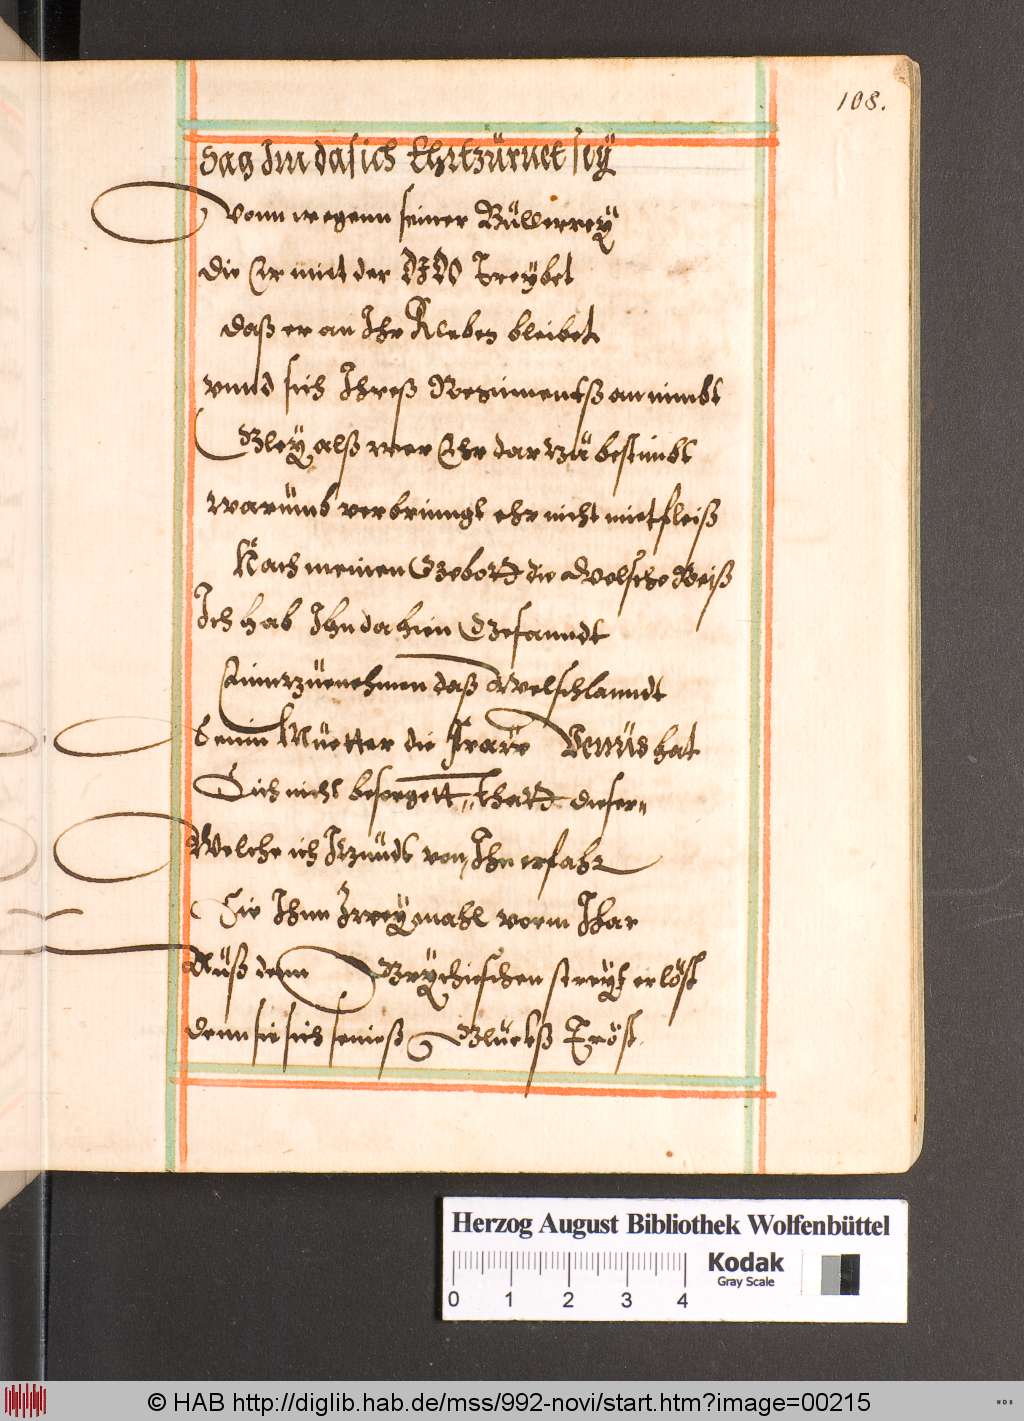 108.
Sag Im da sich Ehrtzürnet sey
Vonn wegenn seiner Büllerrey
die Er mit der DIDO Treybet
daß er an Ihr Kleben bleibet
vnnd sich Ihreß Regimentß annimbt
Gleych alß wer Ehr dar Zü bestimbt
warümb verbringt ehr nicht mit fleiß
Nach meinen Gebott die Welsche Reiß
Ich hab Ihn dahin Gesanndt
Einn zünehmen daß Welschlanndt
Seinn Muetter die Fraw Venüs hat
Sich nicht besorgett, thatt dieser
Welche ich Itzundt von Ihn erfahr
Sie Ihnn Zweymahl vorm Ihar
Auß denn Grychischen streytt erlöst
denn sie sich seineß Glückß Tröst
Herzog August Bibliothek Wolfenbüttel
0 1 2 3 4
Kodak
Gray Scale
© HAB http://diglib.hab.de/mss/992-novi/start.htm?image=00215